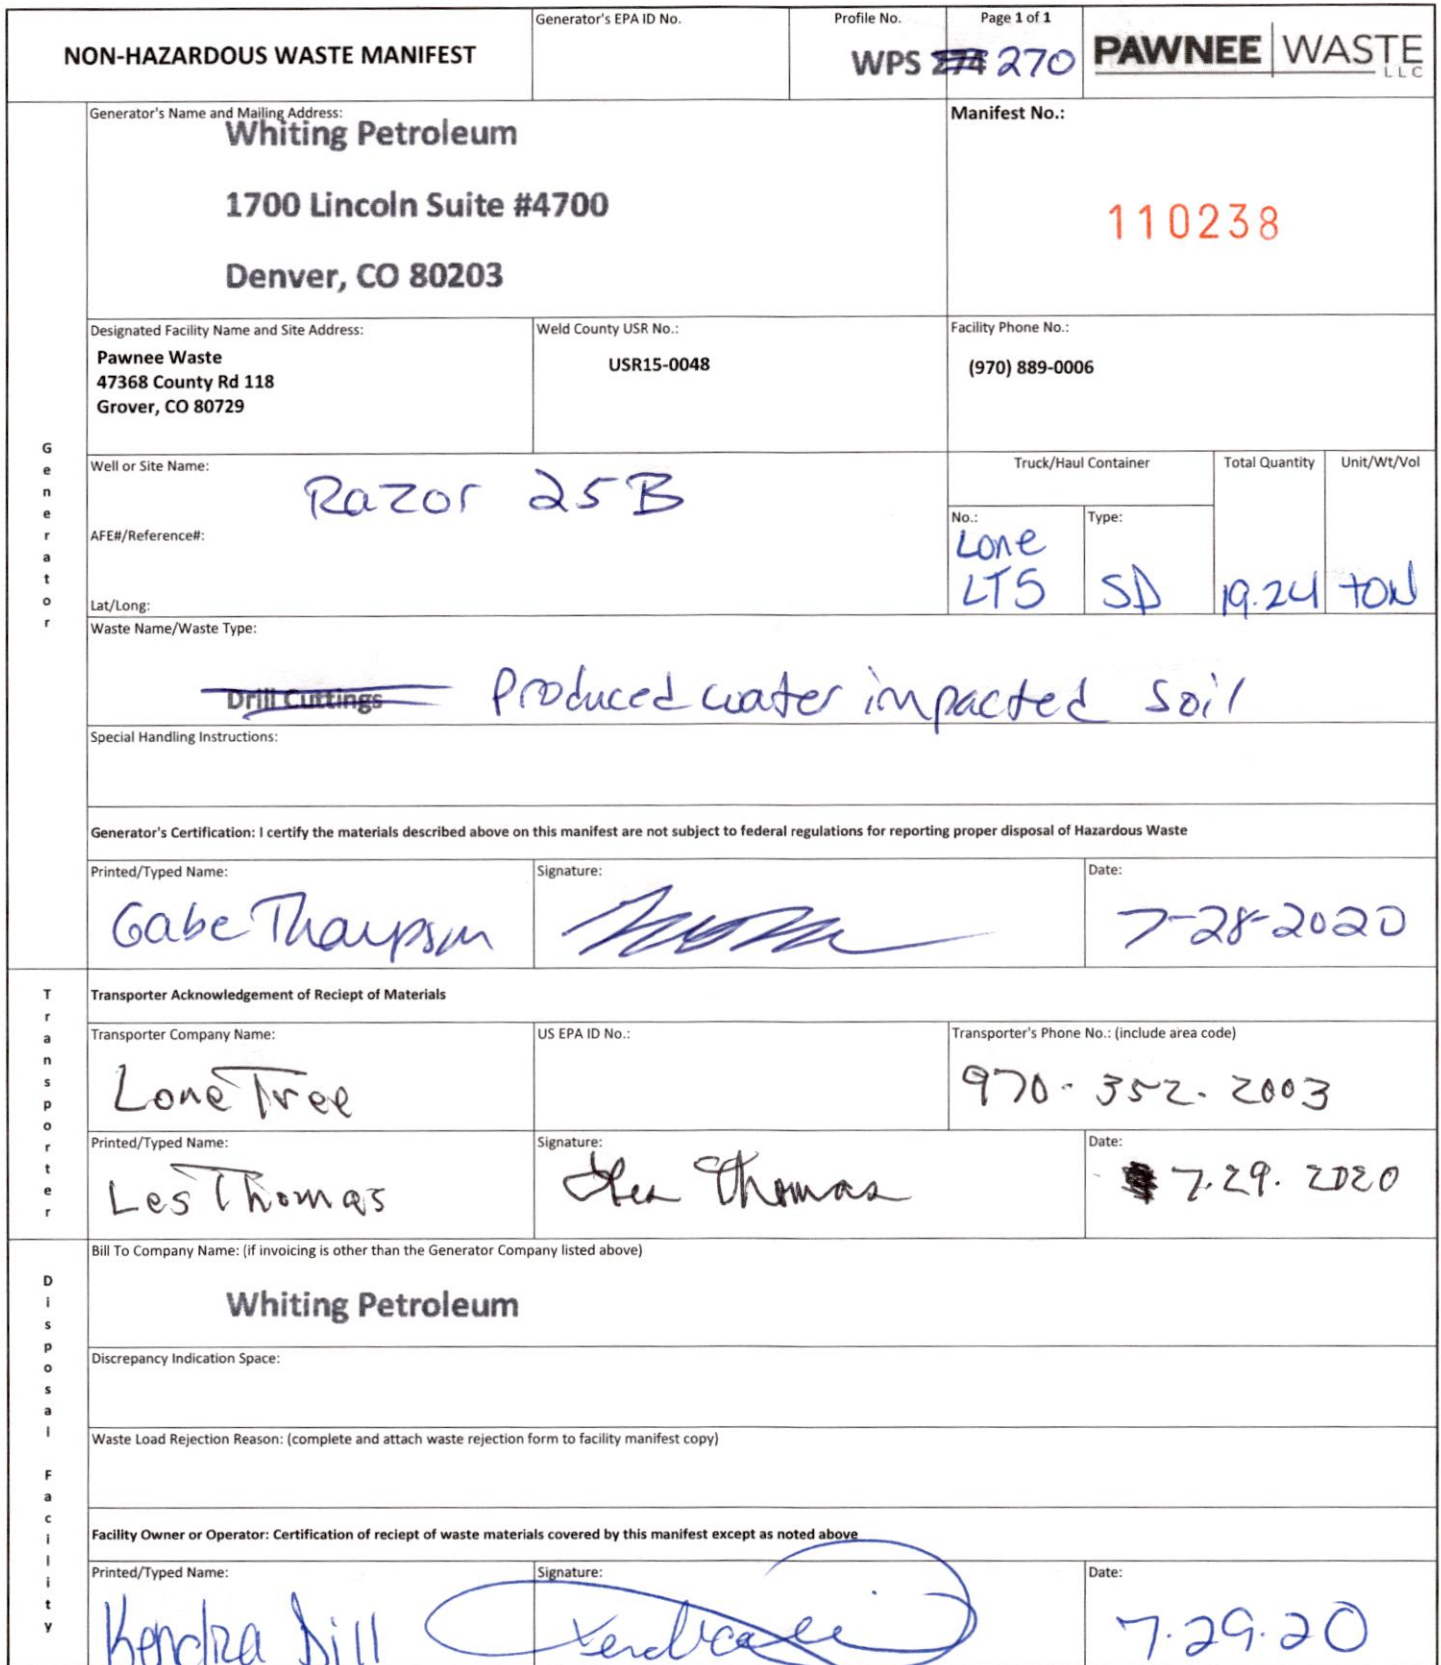 NON-HAZARDOUS WASTE MANIFEST
Generator's EPA ID No.
Profile No.
WPS 274 270
Page 1 of 1
PAWNEE WASTE LLC
Generator's Name and Mailing Address:
Whiting Petroleum
1700 Lincoln Suite #4700
Denver, CO 80203
Manifest No.:
110238
Designated Facility Name and Site Address:
Pawnee Waste
47368 County Rd 118
Grover, CO 80729
Weld County USR No.:
USR15-0048
Facility Phone No.:
(970) 889-0006
Generator
Well or Site Name:
Razor 25B
AFE#/Reference#:
Lat/Long:
Truck/Haul Container
No.:
Lone
LTS
Type:
SD
Total Quantity
19.24
Unit/Wt/Vol
TON
Waste Name/Waste Type:
Drill Cuttings Produced water impacted Soil
Special Handling Instructions:
Generator's Certification: I certify the materials described above on this manifest are not subject to federal regulations for reporting proper disposal of Hazardous Waste
Printed/Typed Name:
Gabe
Signature:
Date:
7-28-2020
Transporter
Transporter Acknowledgement of Reciept of Materials
Transporter Company Name:
Lone Tree
US EPA ID No.:
Transporter's Phone No.: (include area code)
970-352-2003
Printed/Typed Name:
Les Thomas
Signature:
Les Thomas
Date:
7.29.2020
Disposal Facility
Bill To Company Name: (if invoicing is other than the Generator Company listed above)
Whiting Petroleum
Discrepancy Indication Space:
Waste Load Rejection Reason: (complete and attach waste rejection form to facility manifest copy)
Facility Owner or Operator: Certification of reciept of waste materials covered by this manifest except as noted above
Printed/Typed Name:
Kendra Dill
Signature:
Date:
7.29.20